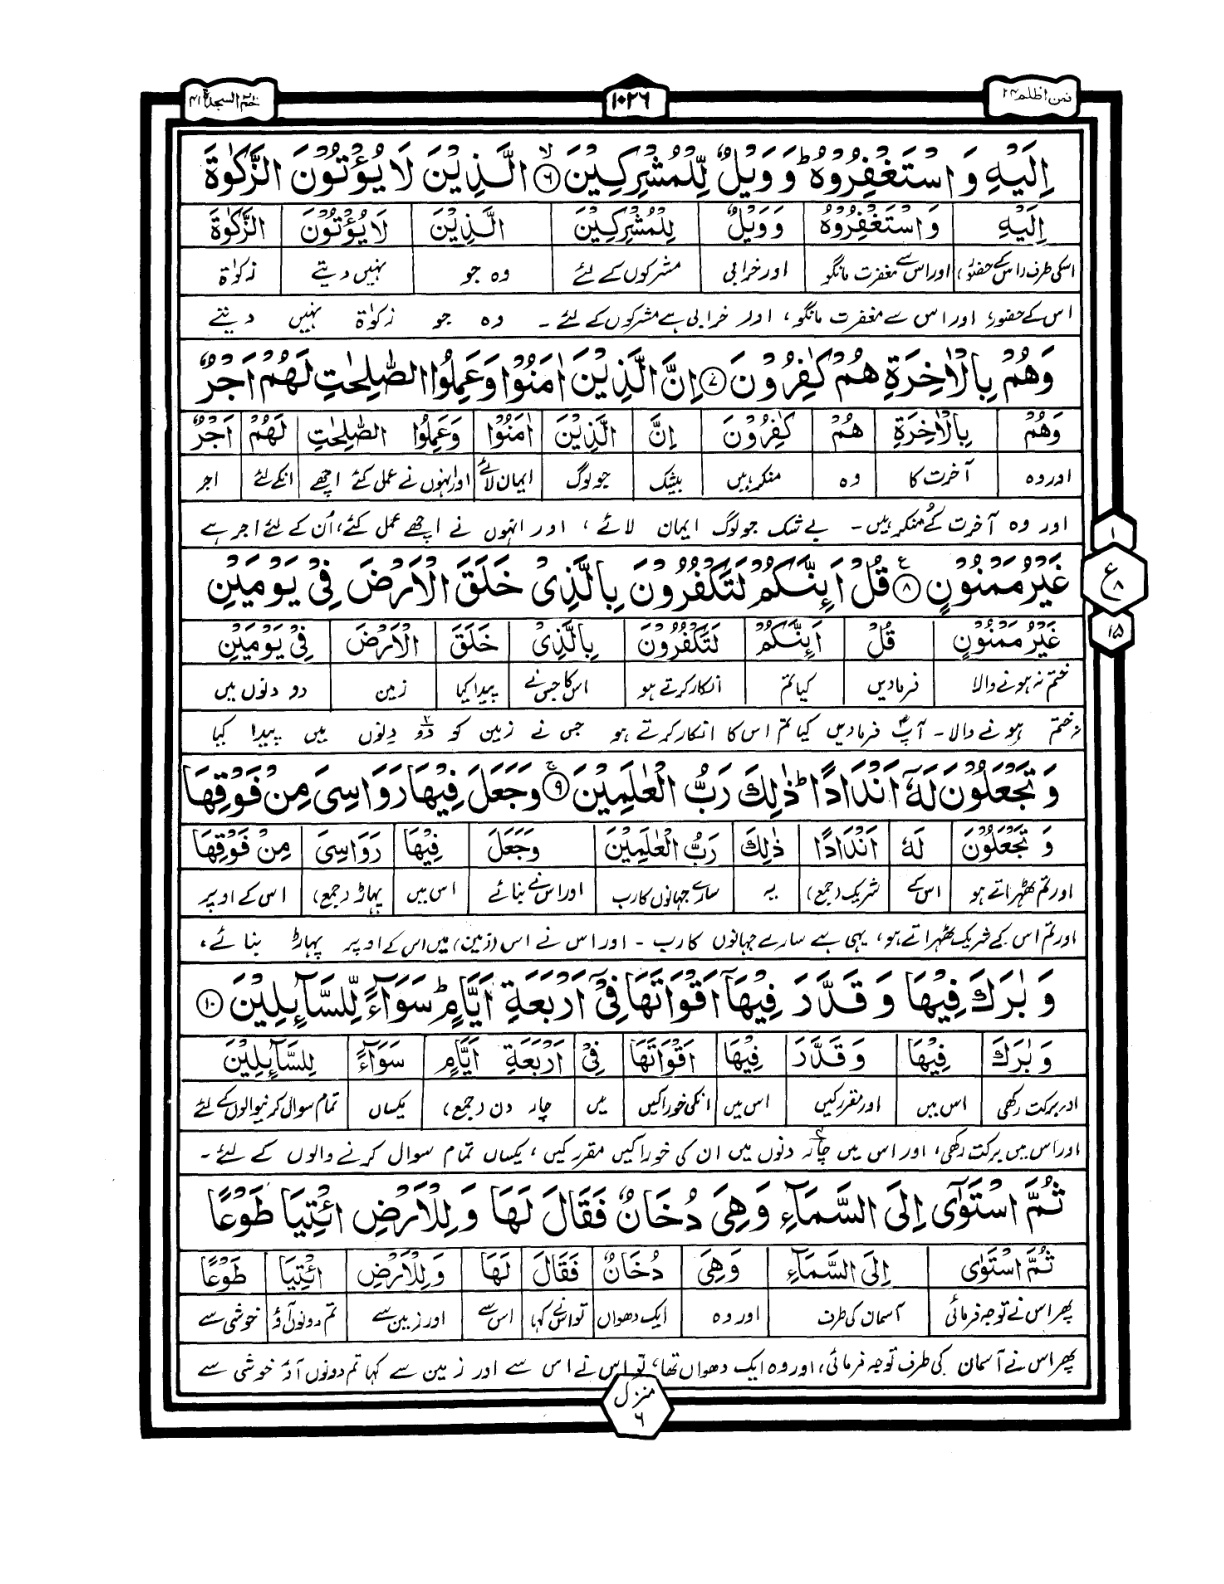 فمن اظلم ۲۴
۱۰۲۶
حٰم السجدة ۴۱
اِلَيْهِ وَ اسْتَغْفِرُوْهُ ؕ وَ وَيْلٌ لِّلْمُشْرِكِيْنَ ۙ۶ الَّذِيْنَ لَا يُؤْتُوْنَ الزَّكٰوةَ
اِلَيْهِ وَ اسْتَغْفِرُوْهُ وَ وَيْلٌ لِلْمُشْرِكِيْنَ الَّذِيْنَ لَا يُؤْتُوْنَ الزَّكٰوةَ
اسکی طرف (اس کے حضور) اور اس سے مغفرت مانگو اور خرابی مشرکوں کے لئے وہ جو نہیں دیتے زکوٰۃ
اس کے حضور، اور اس سے مغفرت مانگو، اور خرابی ہے مشرکوں کے لئے ۔ وہ جو زکوٰۃ نہیں دیتے
وَهُمْ بِالْاٰخِرَةِ هُمْ كٰفِرُوْنَ ۷ اِنَّ الَّذِيْنَ اٰمَنُوْا وَعَمِلُوا الصّٰلِحٰتِ لَهُمْ اَجْرٌ
وَهُمْ بِالْاٰخِرَةِ هُمْ كٰفِرُوْنَ اِنَّ الَّذِيْنَ اٰمَنُوْا وَعَمِلُوا الصّٰلِحٰتِ لَهُمْ اَجْرٌ
اور وہ آخرت کا وہ منکر ہیں بیشک جو لوگ ایمان لائے اور انہوں نے عمل کئے اچھے انکے لئے اجر
اور وہ آخرت کے منکر ہیں ۔ بے شک جو لوگ ایمان لائے ، اور انہوں نے اچھے عمل کئے، اُن کے لئے اجر ہے
غَيْرُ مَمْنُوْنٍ ۸ قُلْ اَئِنَّكُمْ لَتَكْفُرُوْنَ بِالَّذِىْ خَلَقَ الْاَرْضَ فِىْ يَوْمَيْنِ
غَيْرُ مَمْنُوْنٍ قُلْ اَئِنَّكُمْ لَتَكْفُرُوْنَ بِالَّذِىْ خَلَقَ الْاَرْضَ فِىْ يَوْمَيْنِ
ختم نہ ہونے والا فرمادیں کیا تم انکار کرتے ہو اس کا جس نے پیدا کیا زمین دو دنوں میں
نہ ختم ہونے والا ۔ آپ فرمادیں کیا تم اس کا انکار کرتے ہو جس نے زمین کو دو دنوں میں پیدا کیا
وَ تَجْعَلُوْنَ لَهٗۤ اَنْدَادًا ؕ ذٰلِكَ رَبُّ الْعٰلَمِيْنَ ۹ وَجَعَلَ فِيْهَا رَوَاسِىَ مِنْ فَوْقِهَا
وَ تَجْعَلُوْنَ لَهٗۤ اَنْدَادًا ذٰلِكَ رَبُّ الْعٰلَمِيْنَ وَجَعَلَ فِيْهَا رَوَاسِىَ مِنْ فَوْقِهَا
اور تم ٹھہراتے ہو اس کے شریک (جمع) یہ سارے جہانوں کا رب اور اس نے بنائے اس میں پہاڑ (جمع) اس کے اوپر
اور تم اس کے شریک ٹھہراتے ہو، یہی ہے سارے جہانوں کا رب ۔ اور اس نے اس (زمین) میں اس کے اوپر پہاڑ بنائے،
وَ بٰرَكَ فِيْهَا وَ قَدَّرَ فِيْهَاۤ اَقْوَاتَهَا فِىْۤ اَرْبَعَةِ اَيَّامٍ ؕ سَوَآءً لِّلسَّآئِلِيْنَ ۱۰
وَ بٰرَكَ فِيْهَا وَ قَدَّرَ فِيْهَا اَقْوَاتَهَا فِىْ اَرْبَعَةِ اَيَّامٍ سَوَآءً لِلسَّآئِلِيْنَ
اور برکت رکھی اس میں اور مقرر کیں اس میں انکی خوراکیں میں چار دن (جمع) یکساں تمام سوال کرنیوالوں کے لئے
اور اس میں برکت رکھی، اور اس میں چار دنوں میں ان کی خوراکیں مقرر کیں، یکساں تمام سوال کرنے والوں کے لئے ۔
ثُمَّ اسْتَوٰۤى اِلَى السَّمَآءِ وَهِىَ دُخَانٌ فَقَالَ لَهَا وَ لِلْاَرْضِ ائْتِيَا طَوْعًا
ثُمَّ اسْتَوٰۤى اِلَى السَّمَآءِ وَهِىَ دُخَانٌ فَقَالَ لَهَا وَ لِلْاَرْضِ ائْتِيَا طَوْعًا
پھر اس نے توجہ فرمائی آسمان کی طرف اور وہ ایک دھواں تو اس نے کہا اس سے اور زمین سے تم دونوں آؤ خوشی سے
پھر اس نے آسمان کی طرف توجہ فرمائی، اور وہ ایک دھواں تھا، تو اس نے اس سے اور زمین سے کہا تم دونوں آؤ خوشی سے
۱
ع
۸
۱۵
منزل ۶